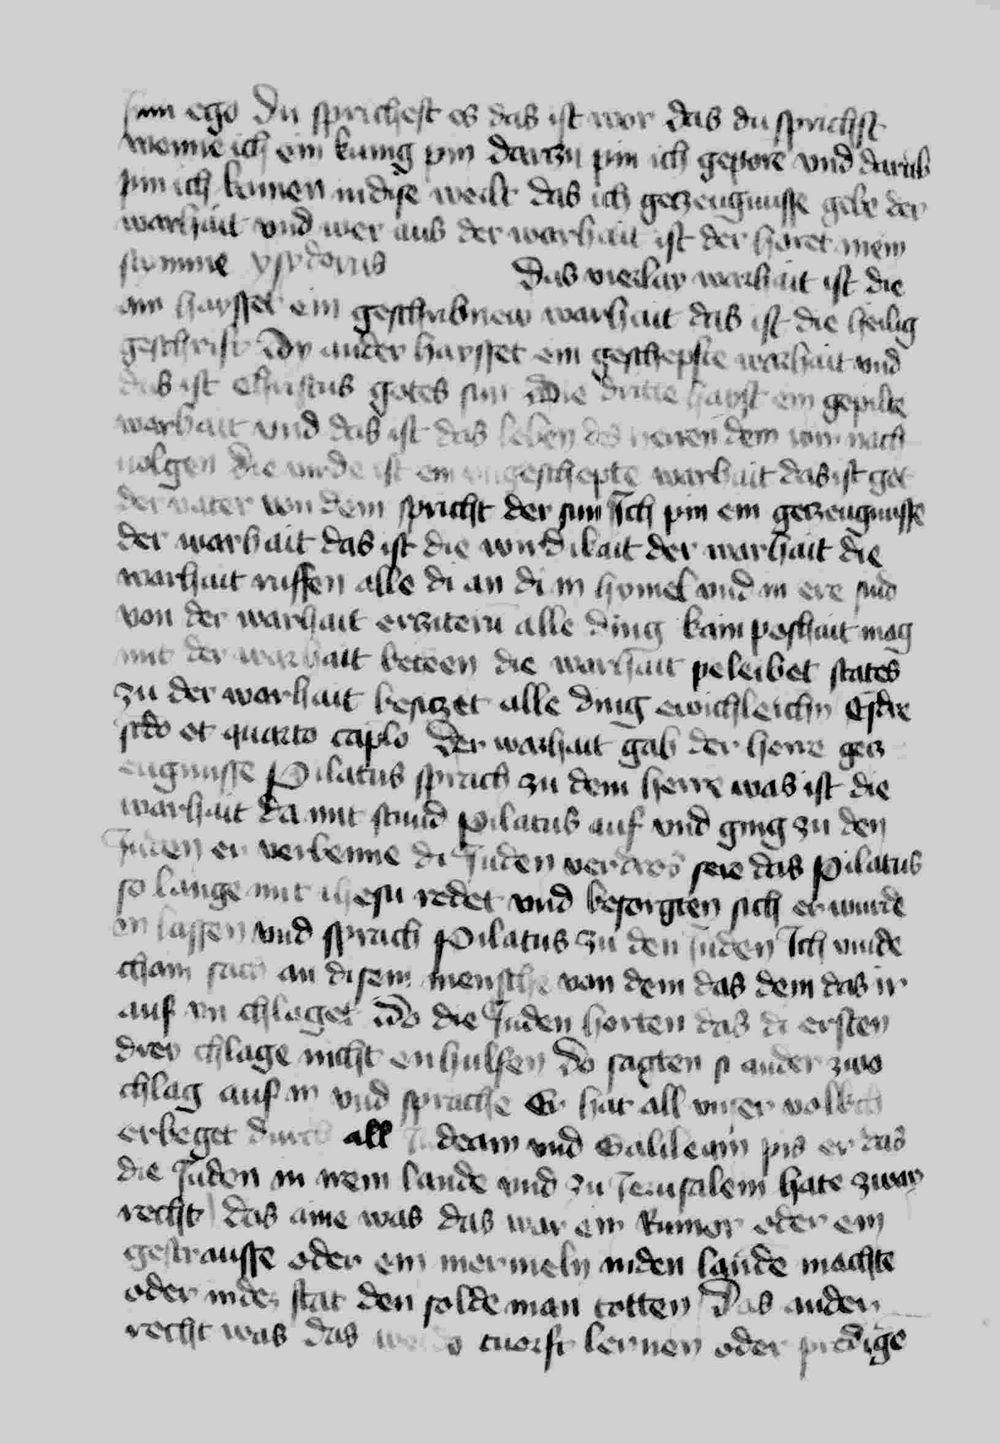 sum ego Du sprichest es das ist wor das du sprichst
wenne ich ein kunig pin darczu pin ich geporn vnd darub
pin ich kumen in dise weilt das ich geczeugnusse gebe der
warhait vnd wer aus der warhait ist der horet mein
stymme ysydorus Das vierlay warhait ist die
ain haysset ein geschribnew warhait das ist die heilig
geschrift Dy ander haysset ein geschepfte warhait vnd
das ist Christus gotes sun Die dritte hayst ein gepilte
warhait vnd das ist das leben des herren dem wir nach
uolgen die virde ist ein vngeschepte warhait das ist got
der vater von dem spricht der sun Ich pin ein geczeugnusse
der warhait das ist die wirdikait der warhait die
warhait ruffen alle di an di in hymel vnd in ere sind
von der warhait erzitern alle ding kain poshait mag
mit der warhait beteen die warhait peleibet states
zu der warhait besiczet alle ding ewichleichn Esdre
scdo et quarto caplo Der warhait gab der herre gecz
eugnusse Pilatus sprach zu dem herre was ist die
warhait da mit stund pilatus auf vnd ging zu den
Juden er verbenne di Juden verdros sere das pilatus
so lange mit ihesu redet vnd besorgten sich er wurde
in lassen vnd sprach Pilatus zu den Juden Ich vinde
chain sach an disem mensche von dem das dem das ir
auf in chlaget Do die Juden horten das di ersten
drey chlage nicht enhulfen do sagten si ander zwo
chlag auf in vnd sprache Er hat all vnser volkch
erbeget durch all Judeam vnd Galileam pis er das
die Juden in irem lande vnd zu Jerusalem hate zway
recht das aine was das war ein Rumor oder ein
gestrausse oder ein mermeln in den lande machte
oder in der stat den solde man totten Das ander
recht was das tuorst lernen oder predige